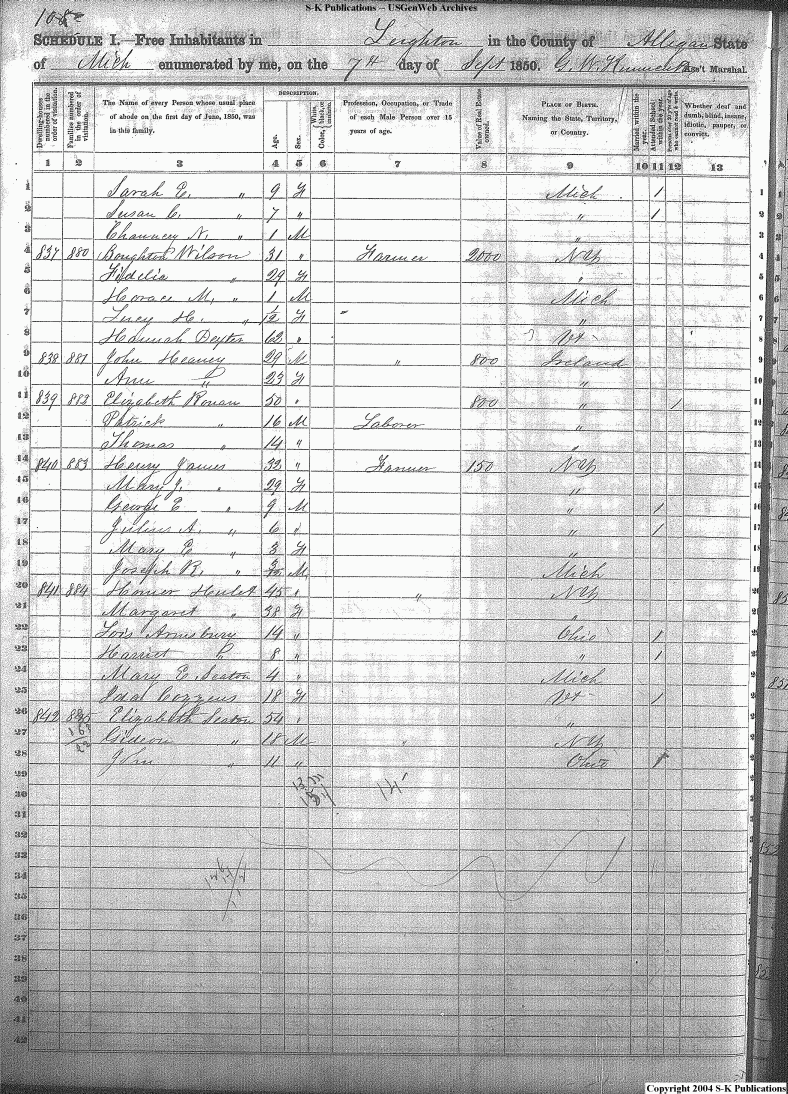 S-K Publications -- USGenWeb Archives
SCHEDULE I.—Free Inhabitants in Leighton in the County of Allegan State
of Mich enumerated by me, on the 7th day of Sept 1850. G. W. Ass't Marshal.
Dwelling-houses numbered in the order of visitation. Families numbered in the order of visitation. The Name of every Person whose usual place of abode on the first day of June, 1850, was in this family. DESCRIPTION. Age. Sex. White, black, or mulatto. Color, Profession, Occupation, or Trade of each Male Person over 15 years of age. Value of Real Estate owned. PLACE OF BIRTH. Naming the State, Territory, or Country. Married within the year. Attended School within the year. Persons over 20 y'rs of age who cannot read & write. Whether deaf and dumb, blind, insane, idiotic, pauper, or convict.
1 2 3 4 5 6 7 8 9 10 11 12 13
1 Sarah E. " 9 F Mich 1 1
2 Susan C. " 7 " " 1 2
3 Chauncey N. " 1 M " 3
4 837 880 Boughton Wilson 31 " Farmer 2000 NY 4
5 Fidelia " 29 F " 5
6 Horace M. " 1 M Mich 6
7 Lucy H. " 1/12 F " 7
8 Hannah Dexter 62 " Vt 8
9 838 881 John Heaney 29 M " 800 Ireland 9
10 Ann " 23 F " 10
11 839 882 Elizabeth Ronan 50 " 800 " 1 11
12 Patrick " 16 M Laborer " 12
13 Thomas " 14 " " 13
14 840 883 Henry James 32 " Farmer 150 NY 14
15 Mary J. " 29 F " 15
16 George E " 9 M " 1 16
17 Julius A. " 6 " " 1 17
18 Mary E " 3 F " 18
19 Joseph R. " M Mich 19
20 841 884 Homer Hulet 45 " " NY 20
21 Margaret " 38 F " 21
22 Lois Armsbury 14 " Ohio 1 22
23 Harriet " 8 " " 1 23
24 Mary E. Seaton 4 " Mich 24
25 Ida Cozzens 18 F Vt 1 25
26 842 885 Elizabeth Seaton 54 " " 26
27 Gideon " 18 M " NY 27
28 John " 11 " Ohio 1 28
29 29
30 30
31 31
32 32
33 33
34 34
35 35
36 36
37 37
38 38
39 39
40 40
41 41
42 42
Copyright 2004 S-K Publications